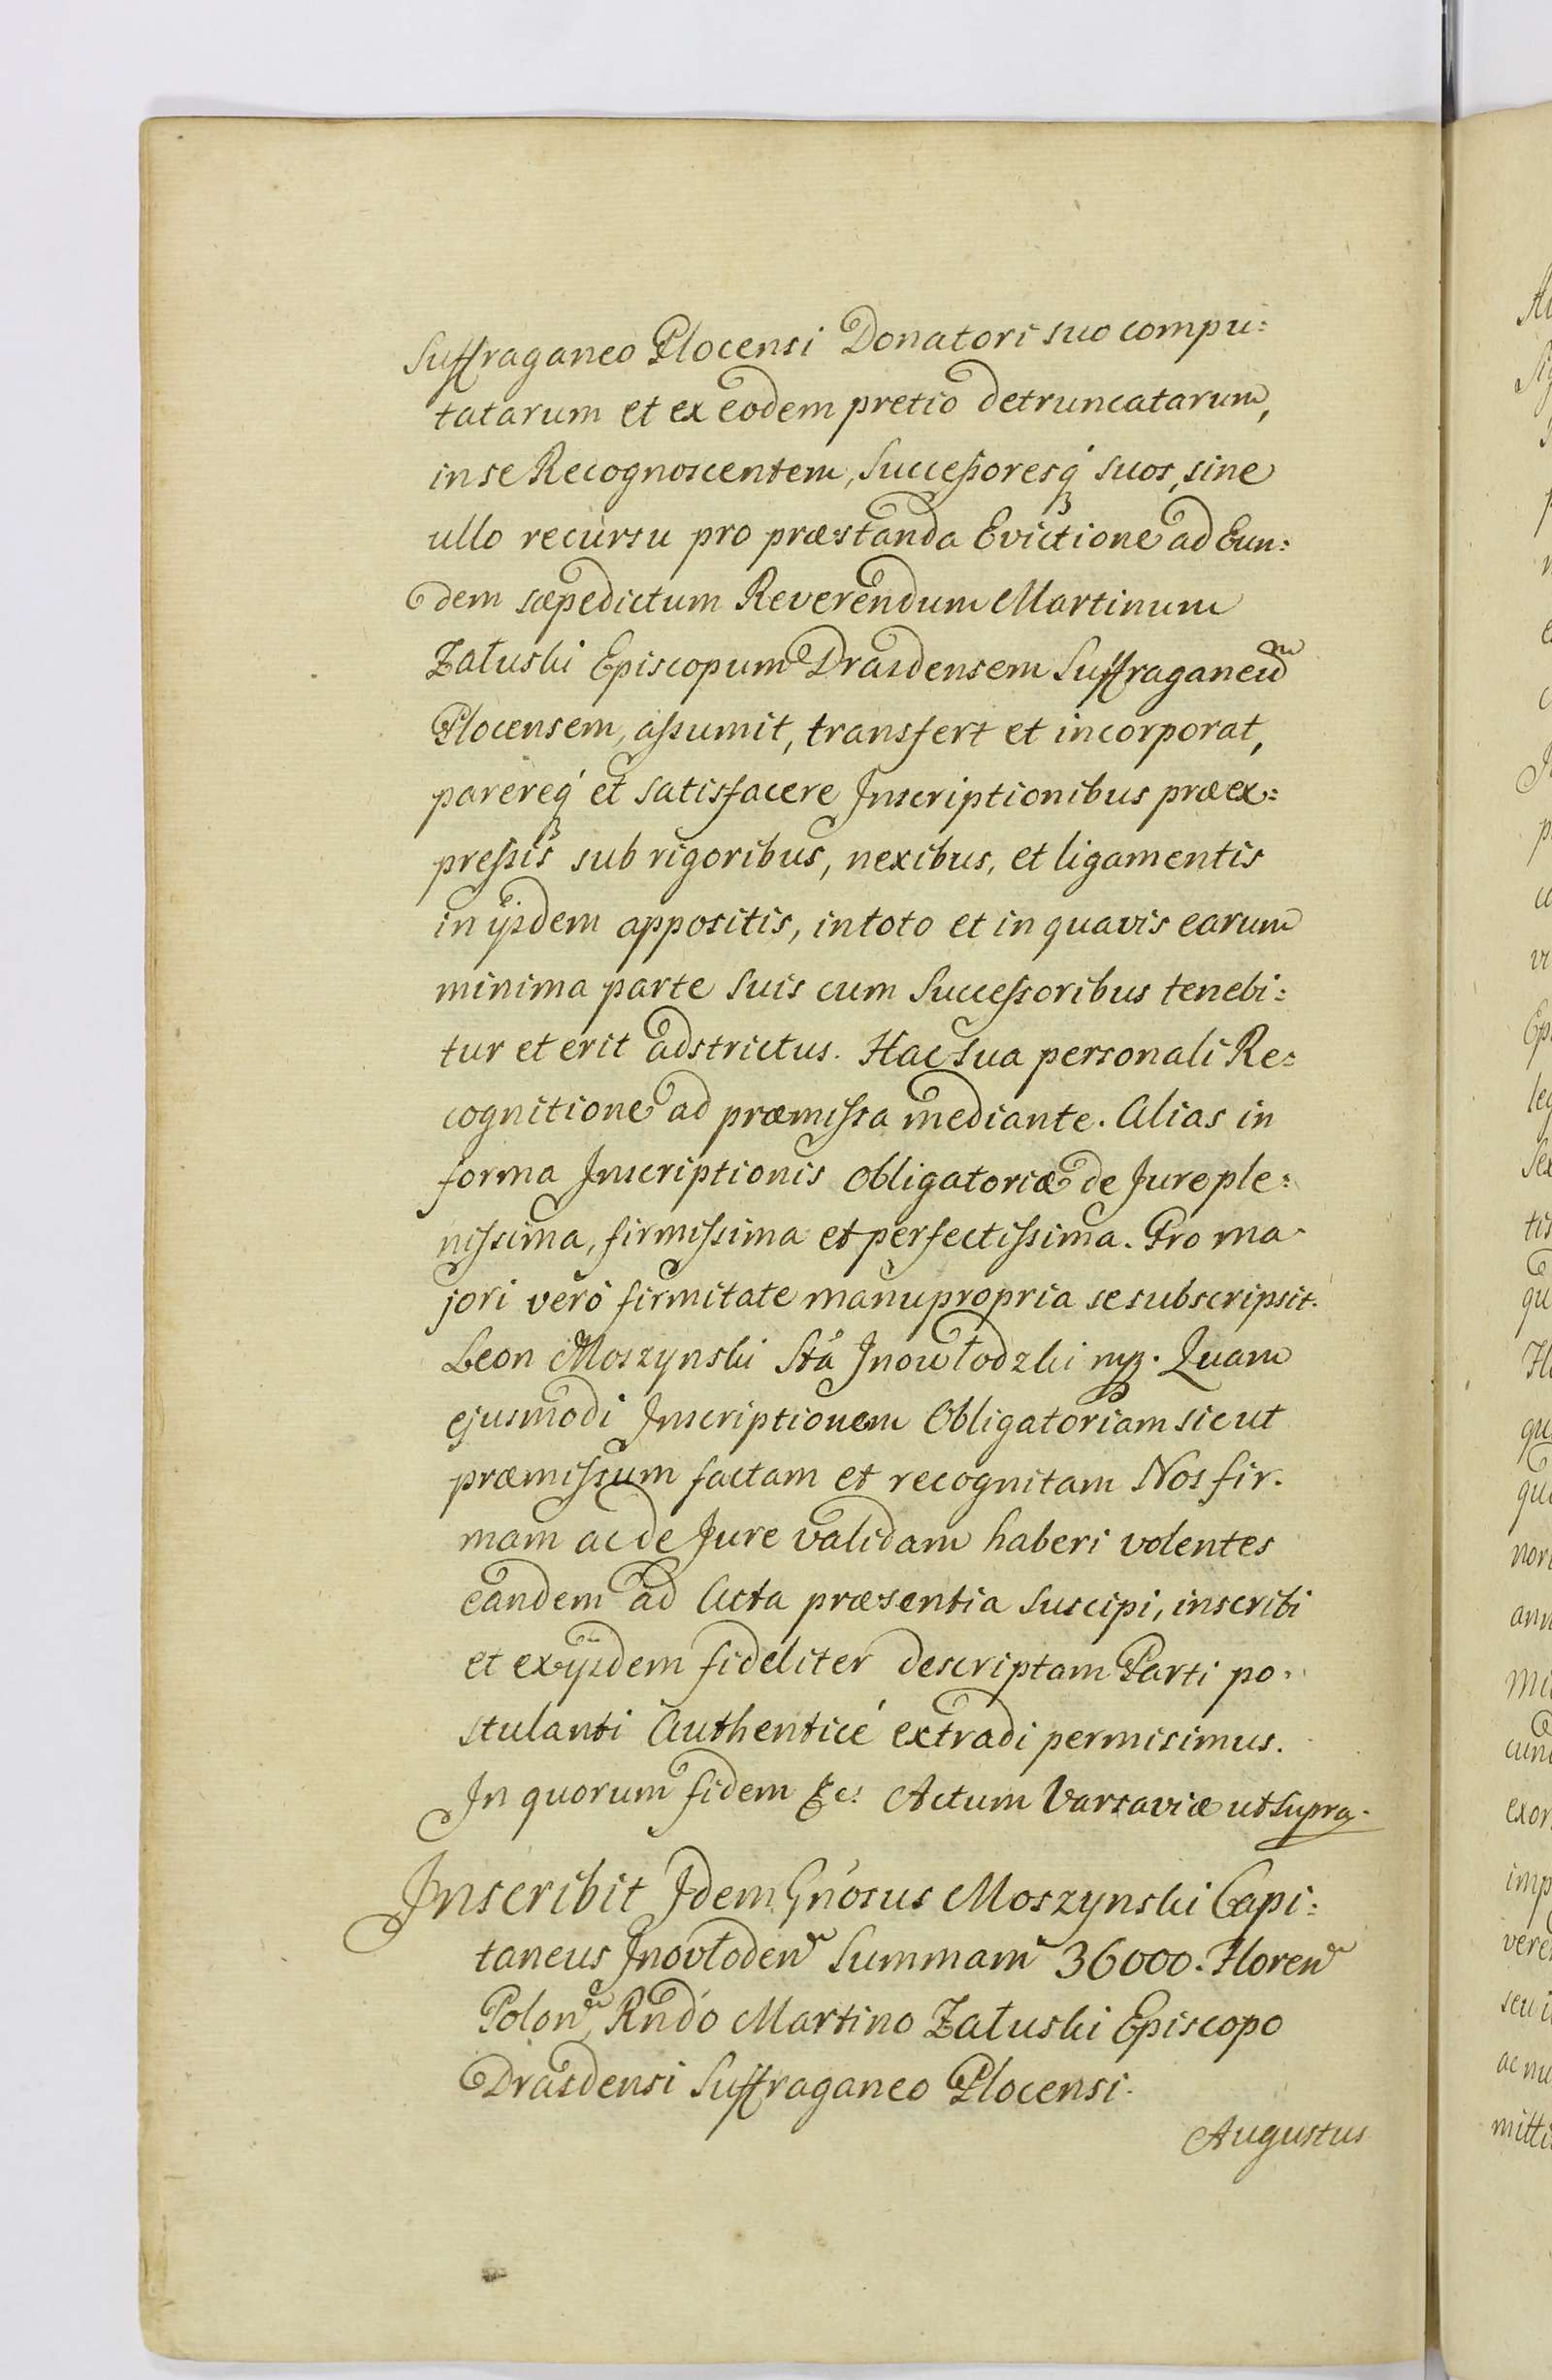 Suffraganeo Plocensi Donatori suo compu:
tatarum et ex eodem pretio detruncatarum,
in se Recognoscentem, Successoresq́ suos, sine
ullo recursu pro præstanda Evictione ad Eun:
dem sæpedictum Reverendum Martinum
Załuski Episcopum Drasdensem Suffraganeum
Plocensem, assumit, transfert et incorporat,
parereq́ et satisfacere Inscriptionibus præex:
pressis sub rigoribus, nexibus, et ligamentis
in ijsdem appositis, in toto et in quavis earum
minima parte suis cum Successoribus tenebi:
tur et erit adstrictus. Hac sua personali Re:
cognitione ad præmissa mediante. Alias in
forma Inscriptionis obligatoriæ de Jure ple:
nissima, firmissima et perfectissima. Pro ma-
jori verò firmitate manu propria se subscripsit.
Leon Moszynski Stá Inowłodzki mp. Quam
ejusmodi Inscriptionem Obligatoriam sicut
præmissum factam et recognitam Nos fir-
mam ac de Jure validam haberi volentes
eandem ad Acta præsentia suscipi, inscribi
et ex ijsdem fideliter descriptam Parti po-
stulanti Authenticé extradi permisimus.
In quorum fidem &c: Actum Varsaviæ ut supra.
Inscribit Idem Gńosus Moszynski Capi:
taneus Inovłoden Summam 36000. Floren
Polon, Rńdo Martino Załuski Episcopo
Drasdensi Suffraganeo Plocensi.
Augustus